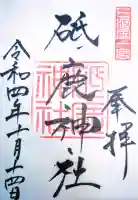 奉拝
三河國一之宮
砥鹿神社
令和四年十月十四日